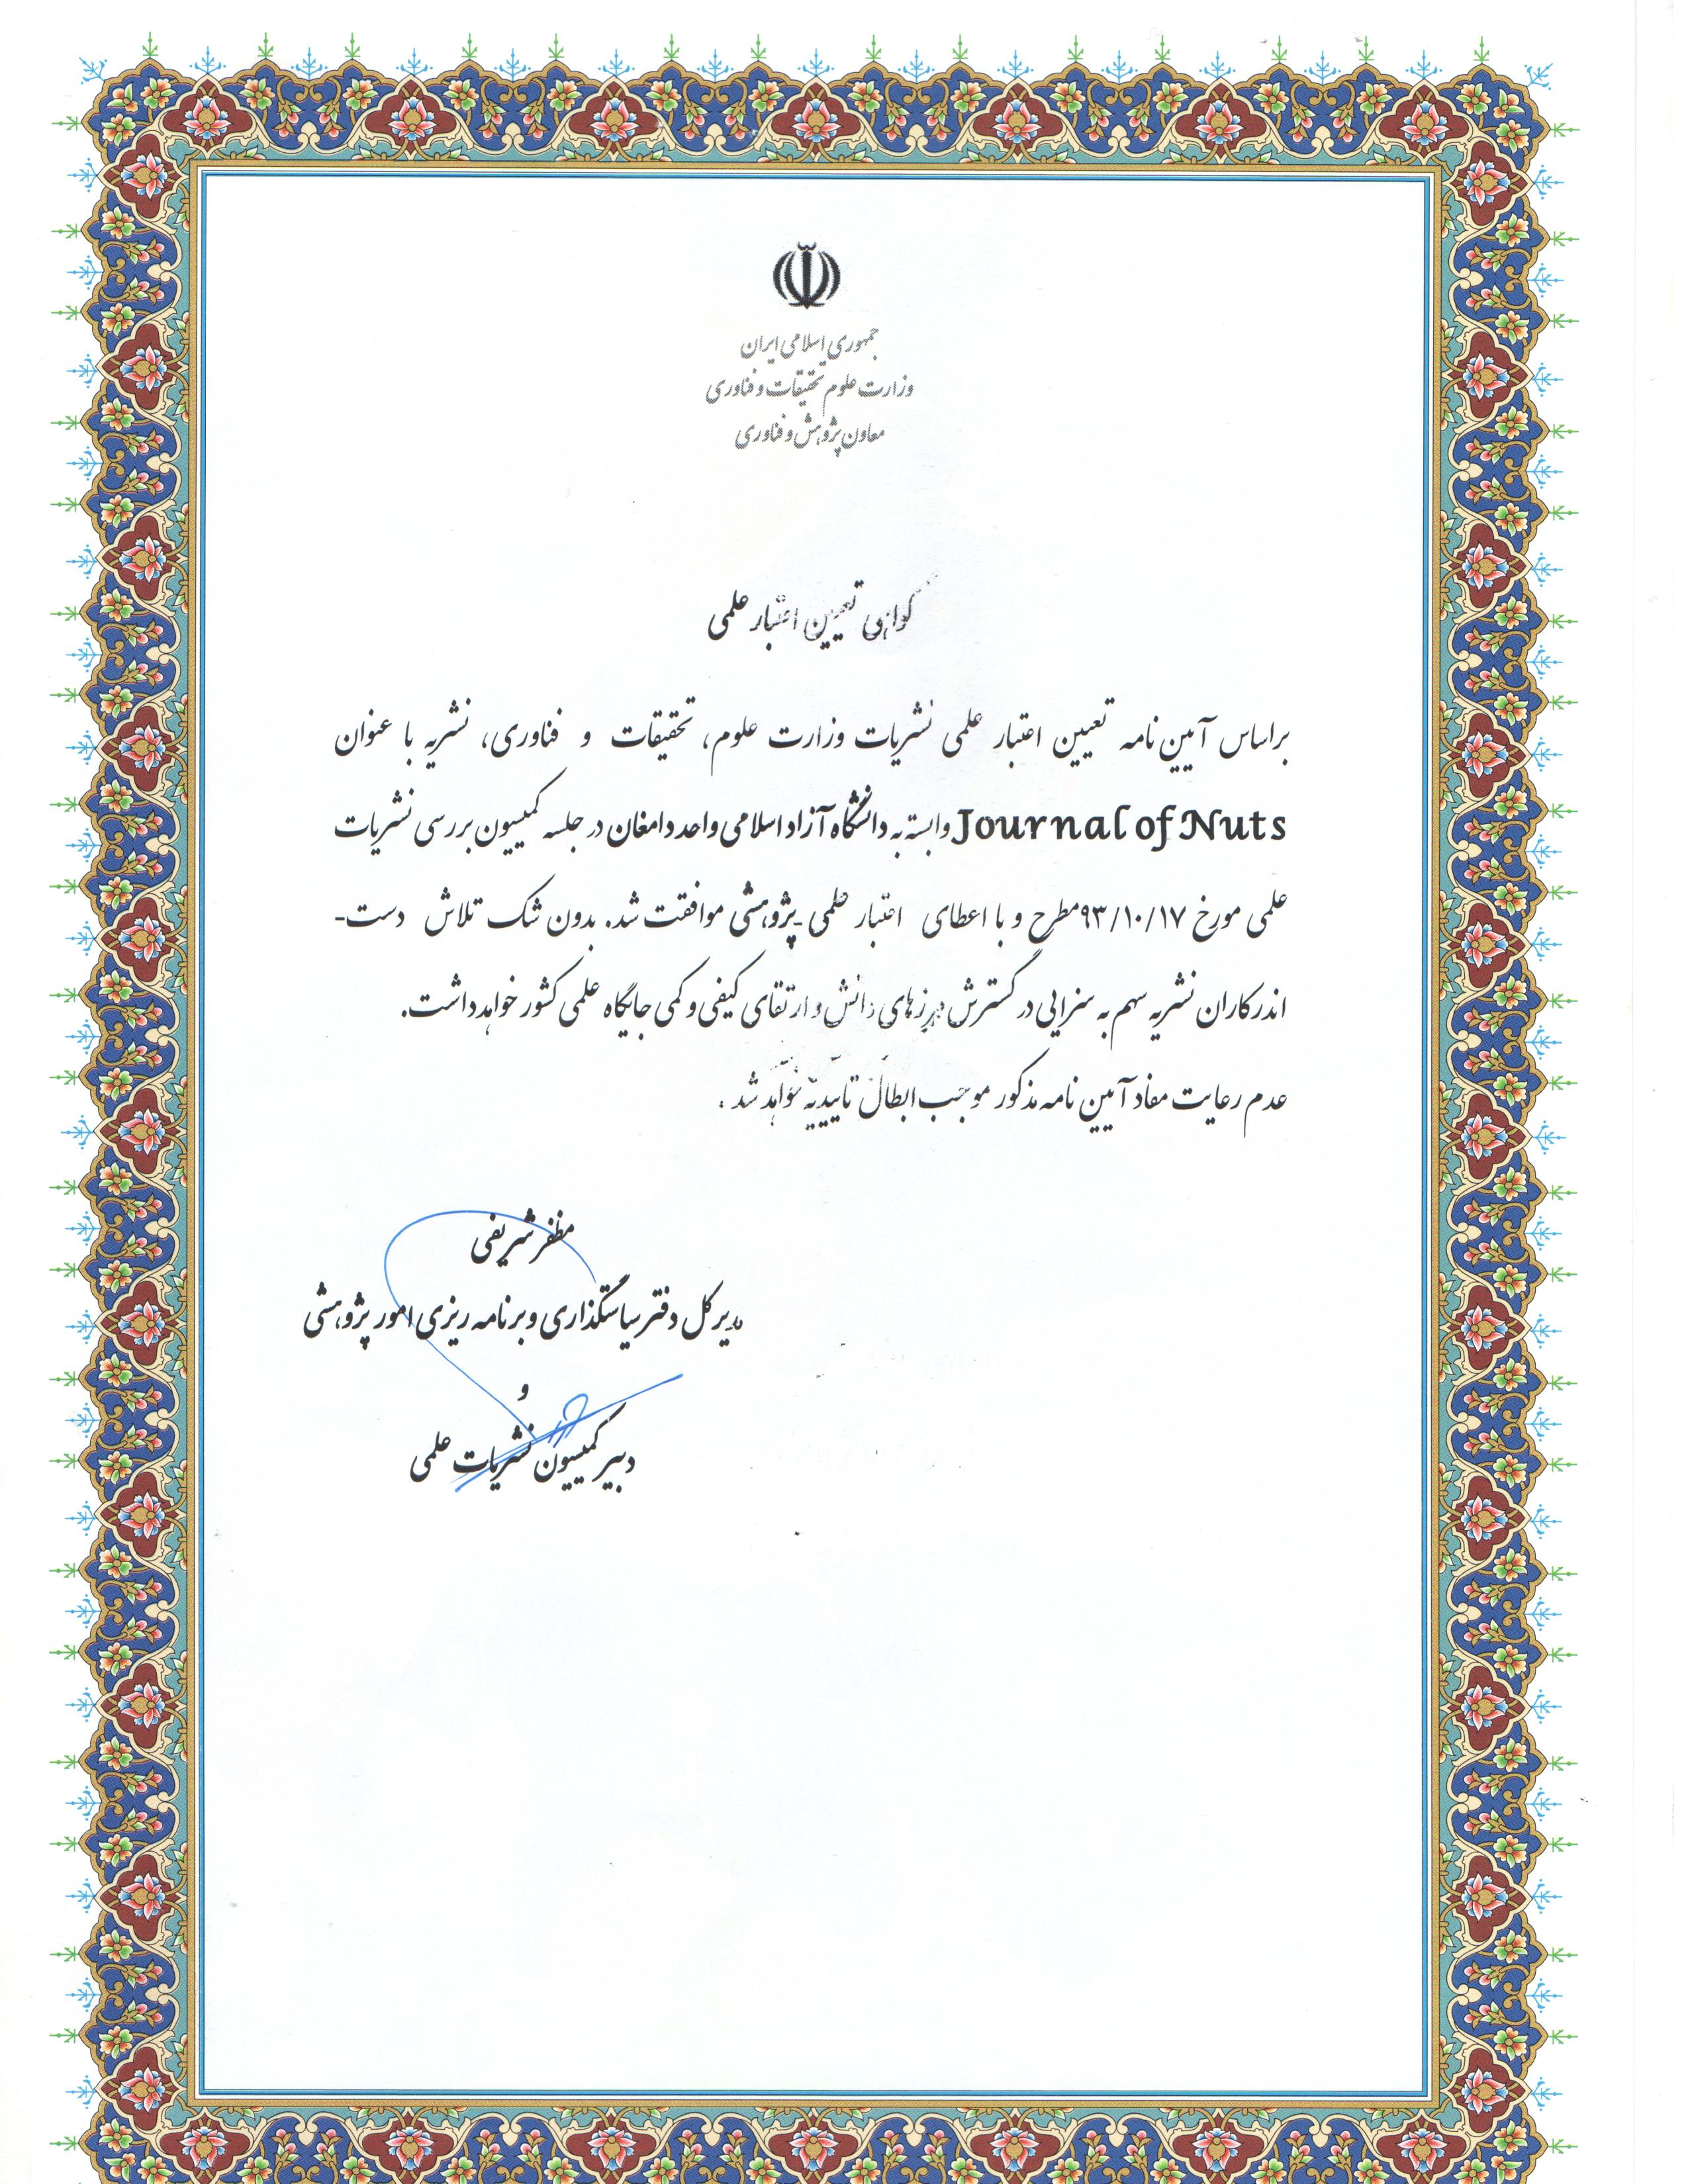 جمهوری اسلامی ایران
وزارت علوم تحقیقات و فناوری
معاون پژوهش و فناوری
گواهی تعیین اعتبار علمی
براساس آیین نامه تعیین اعتبار علمی نشریات وزارت علوم، تحقیقات و فناوری، نشریه با عنوان
Journal of Nuts وابسته به دانشگاه آزاد اسلامی واحد دامغان در جلسه کمیسیون بررسی نشریات
علمی مورخ ۹۳/۱۰/۱۷ مطرح و با اعطای اعتبار علمی -پژوهشی موافقت شد. بدون شک تلاش دست-
اندرکاران نشریه سهم به سزایی در گسترش مرزهای دانش و ارتقای کیفی و کمی جایگاه علمی کشور خواهد داشت.
عدم رعایت مفاد آیین نامه مذکور موجب ابطال تاییدیه خواهد شد.
مظفر شریفی
مدیر کل دفتر سیاستگذاری و برنامه ریزی امور پژوهشی
و
دبیر کمیسیون نشریات علمی